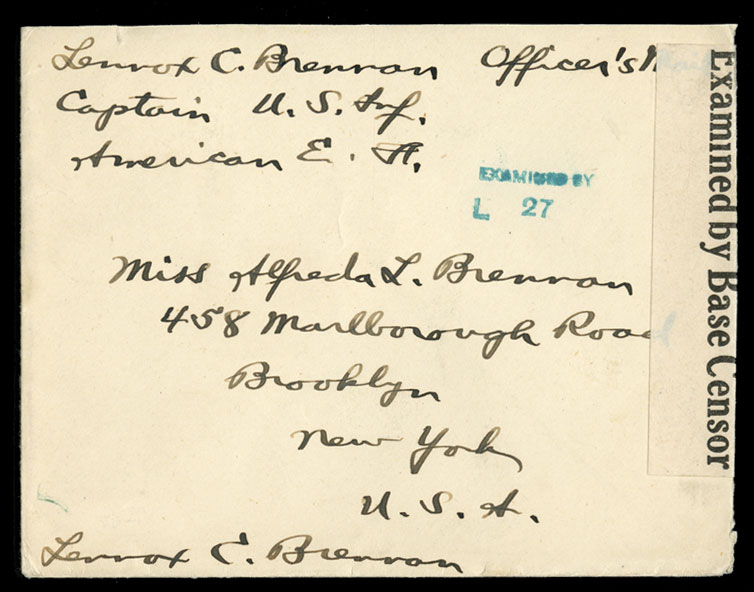 Lennox C. Brennan Officer's
Captain U. S. Inf.
American E. F.
EXAMINED BY
L 27
Miss Alfreda L. Brennan
458 Marlborough Road
Brooklyn
New York
U. S. A.
Lennox C. Brennan
Examined by Base Censor